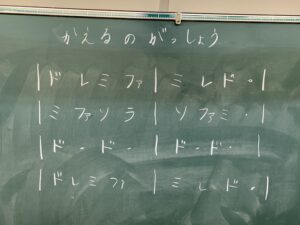 かえるのがっしょう
|ドレミファ|ミレド・|
|ミファソラ|ソファミ・|
|ド・ド・|ド・ド・|
|ドレミファ|ミレド・|